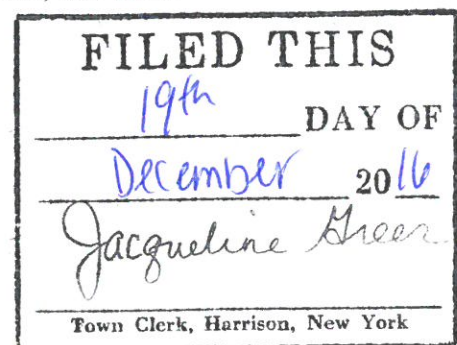 FILED THIS
19th DAY OF
December 2016
Jacqueline Greer
Town Clerk, Harrison, New York